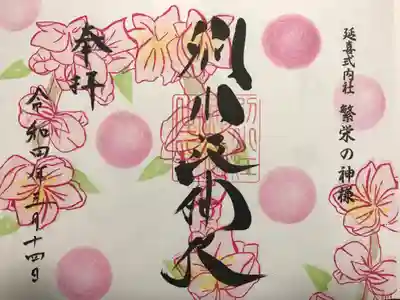 延喜式内社 繁栄の神様
別小江神社
奉拝
令和四年三月十四日